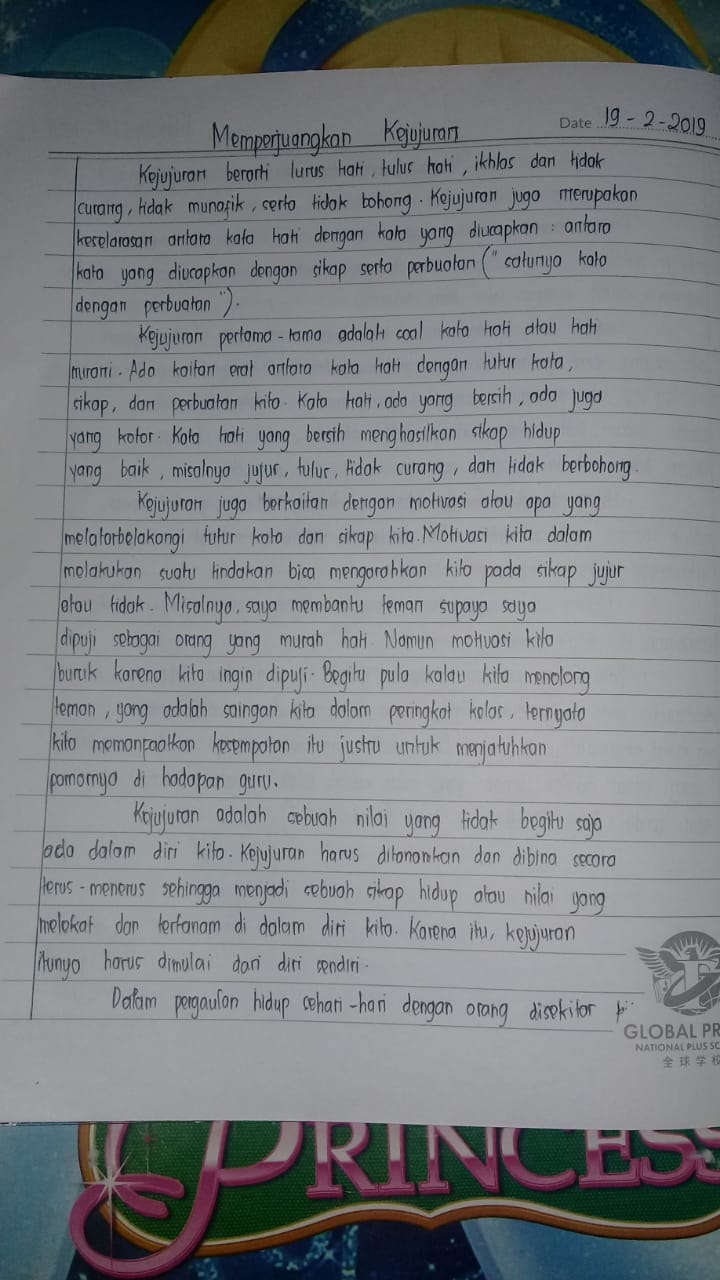 Memperjuangkan Kejujuran
Date 19-2-2019
Kejujuran berarti lurus hati, tulus hati, ikhlas dan tidak
curang, tidak munafik, serta tidak bohong. Kejujuran juga merupakan
keselarasan antara kata hati dengan kata yang diucapkan : antara
kata yang diucapkan dengan sikap serta perbuatan ("satunya kata
dengan perbuatan").
Kejujuran pertama-tama adalah soal kata hati atau hati
nurani. Ada kaitan erat antara kata hati dengan tutur kata,
sikap, dan perbuatan kita. Kata hati, ada yang bersih, ada juga
yang kotor. Kata hati yang bersih menghasilkan sikap hidup
yang baik, misalnya jujur, tulus, tidak curang, dan tidak berbohong.
Kejujuran juga berkaitan dengan motivasi atau apa yang
melatarbelakangi tutur kata dan sikap kita. Motivasi kita dalam
melakukan suatu tindakan bisa mengarahkan kita pada sikap jujur
atau tidak. Misalnya, saya membantu teman supaya saya
dipuji sebagai orang yang murah hati. Namun motivasi kita
buruk karena kita ingin dipuji. Begitu pula kalau kita menolong
teman, yang adalah saingan kita dalam peringkat kelas, ternyata
kita memanfaatkan kesempatan itu justru untuk menjatuhkan
pamornya di hadapan guru.
Kejujuran adalah sebuah nilai yang tidak begitu saja
ada dalam diri kita. Kejujuran harus ditanamkan dan dibina secara
terus-menerus sehingga menjadi sebuah sikap hidup atau nilai yang
melekat dan tertanam di dalam diri kita. Karena itu, kejujuran
itunya harus dimulai dari diri sendiri.
Dalam pergaulan hidup sehari-hari dengan orang disekitar
GLOBAL PR
NATIONAL PLUS SC
全球学校
PRINCESS